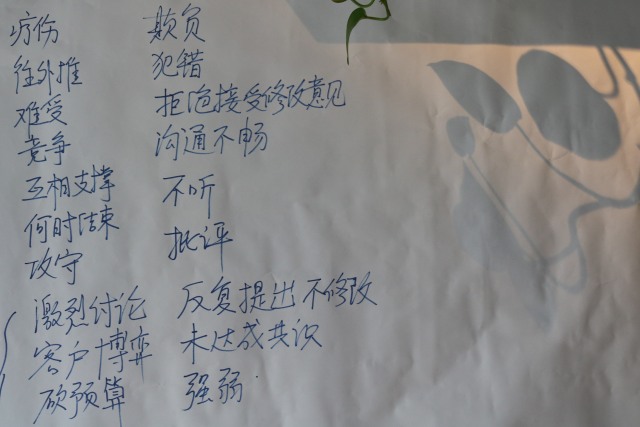 疗伤 欺负
往外推 犯错
难受 拒绝接受修改意见
竞争 沟通不畅
互相支撑 不听
何时结束 批评
攻守
激烈讨论 反复提出不修改
客户博弈 未达成共识
砍预算 强弱.